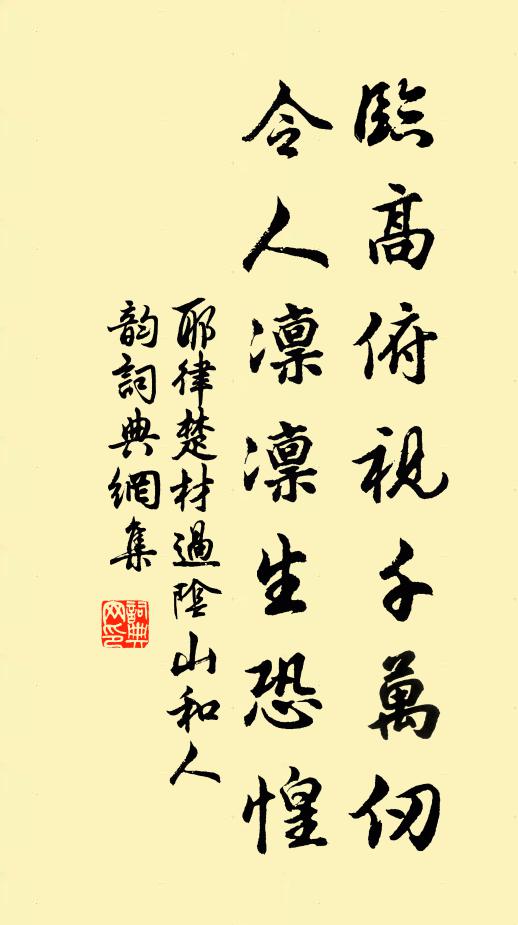 臨高俯視千萬仞
令人凜凜生恐惶
耶律楚材過陰山和人
韵詞典網集
詞典网印